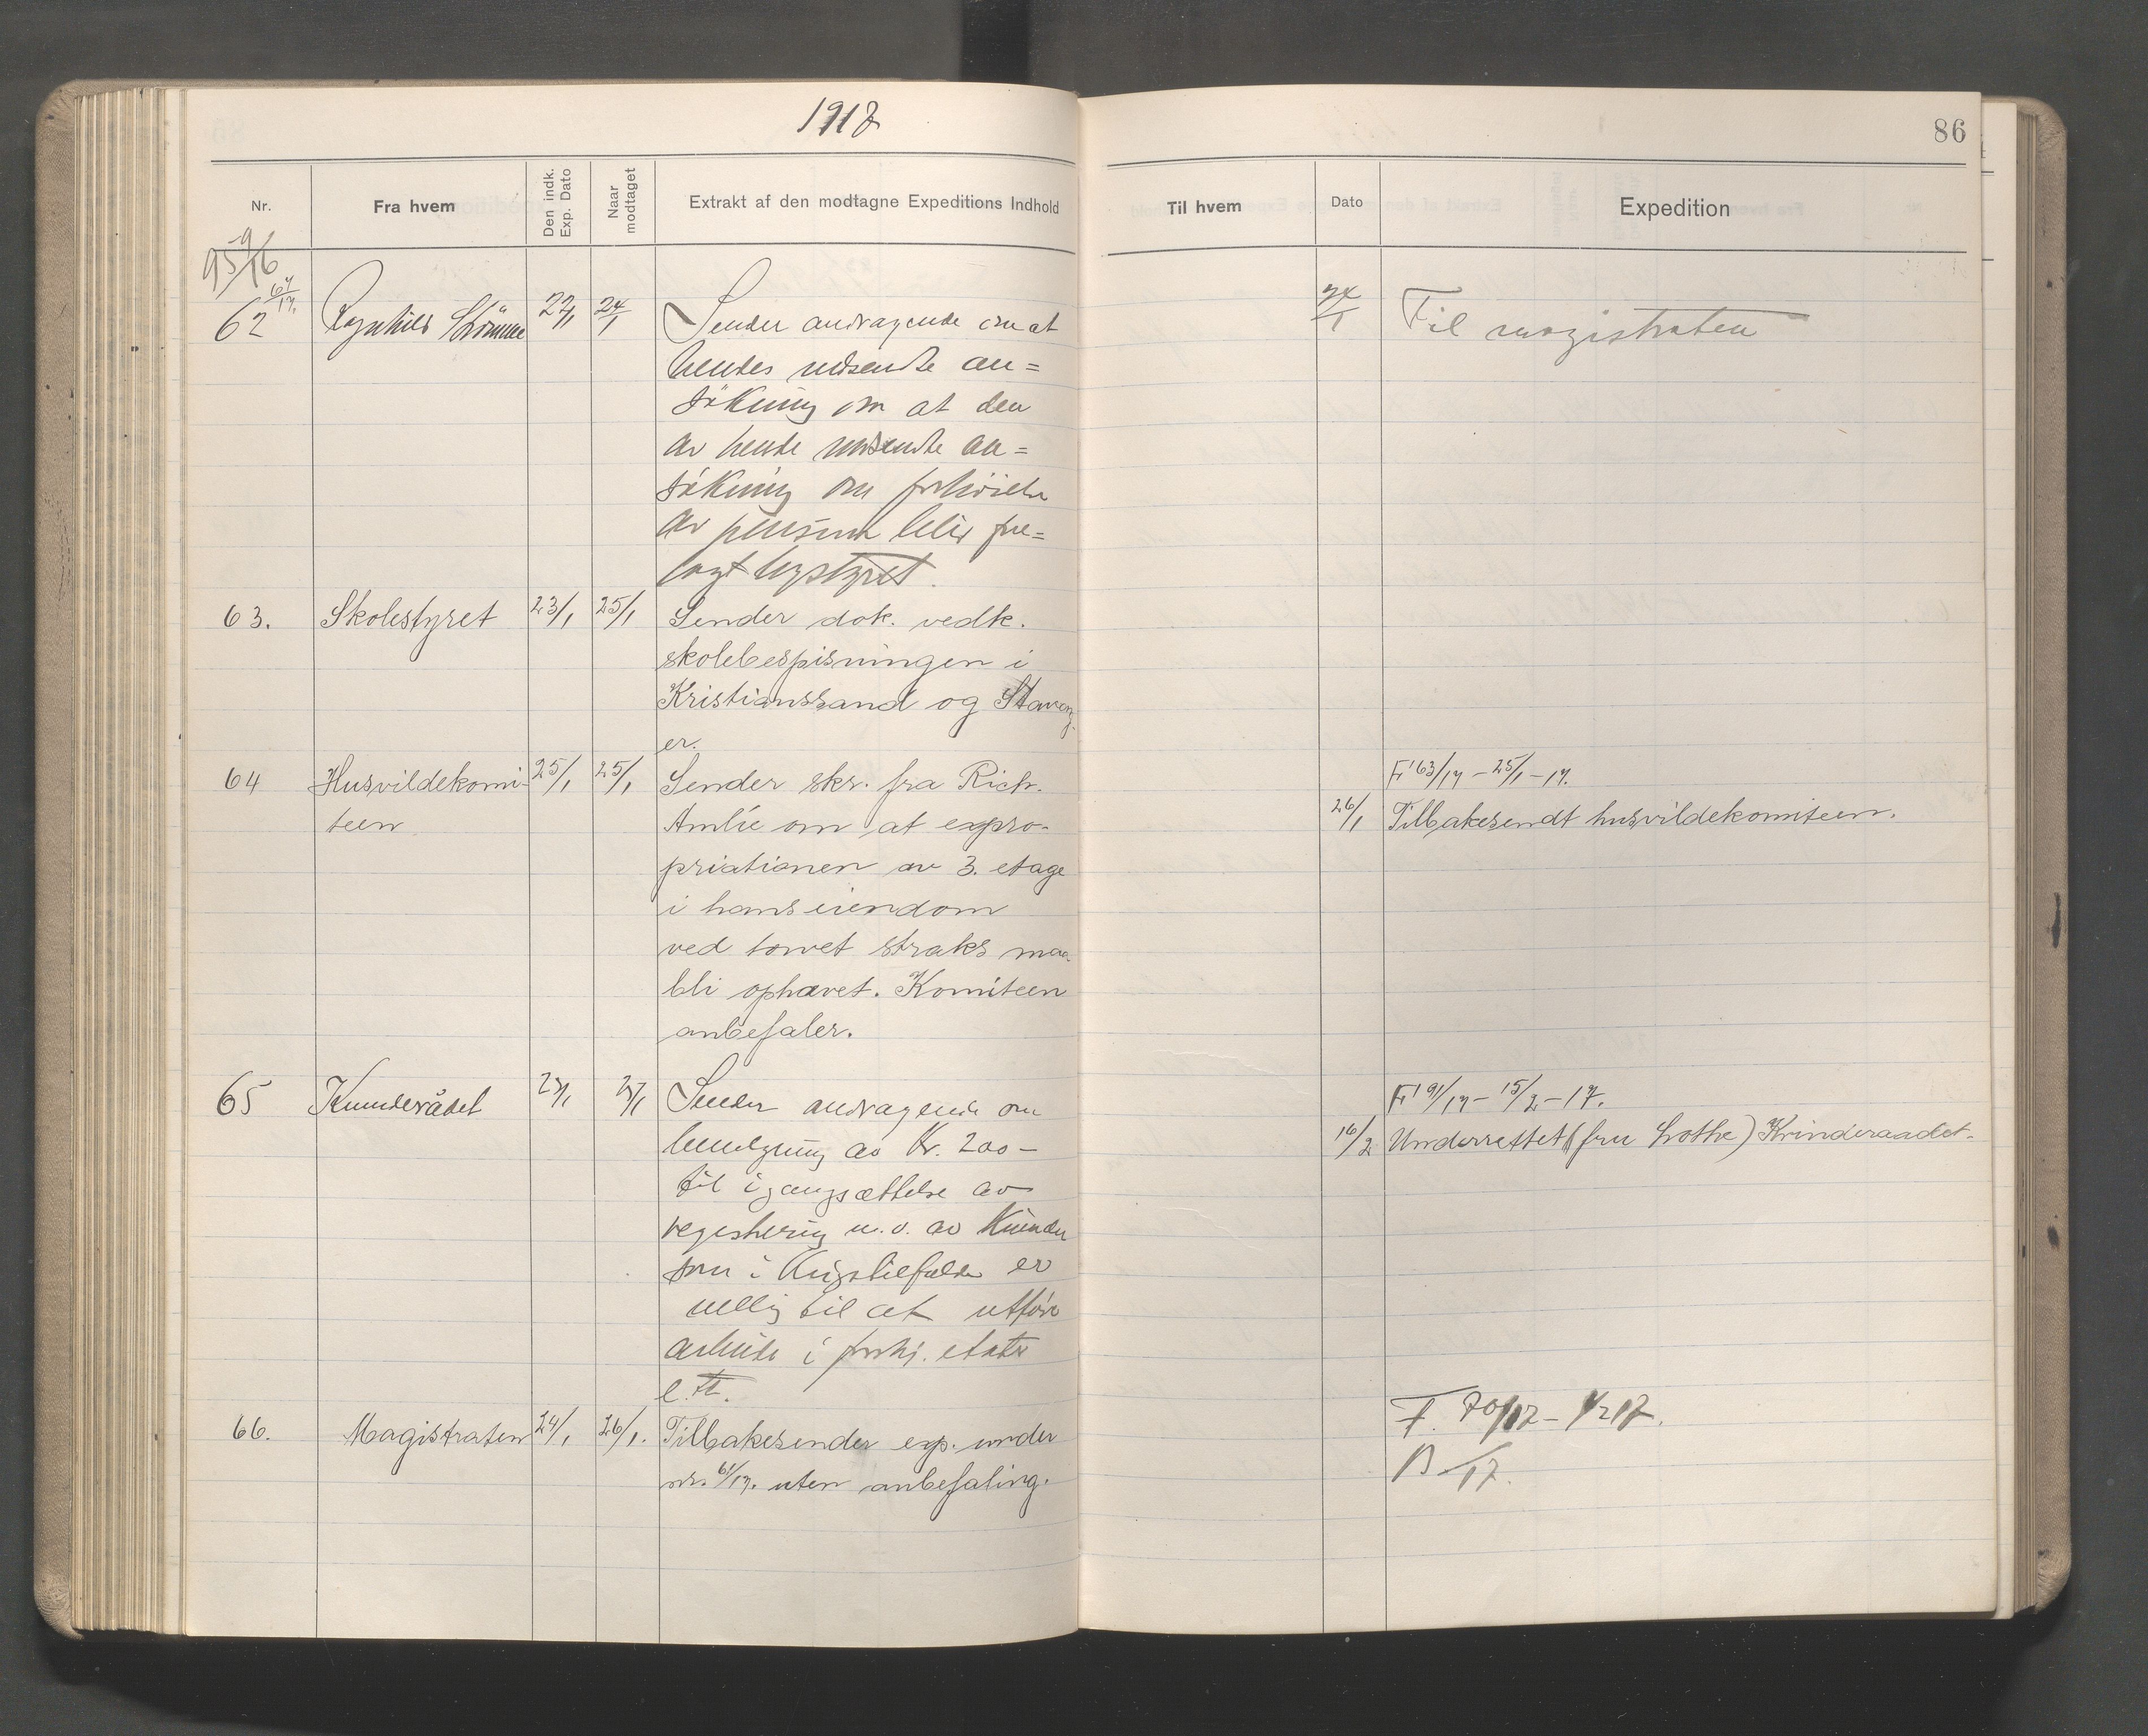 1917
86
Nr.
Fra hvem
Den indk. Exp. Dato
Naar modtaget
Extrakt af den modtagne Expeditions Indhold
Til hvem
Dato
Expedition
62
Ragnhild Strømme
22/1
24/1
Sender andragende om at
hendes indsendte an=
søkning om at den
av hende indsendte an=
søkning om forhöielse
av pension blir fore=
lagt bystyret.
24/1
Til magistraten
63.
Skolestyret
23/1
25/1
Sender dok. vedk.
skolebespisningen i
Kristianssand og Stavang-
er.
64
Husvildekomi-
teen
25/1
25/1
Sender skr. fra Rich.
Amlie om at expro-
priationen av 3. etage
i hans eiendom
ved torvet straks maa
bli ophævet. Komiteen
anbefaler.
F 63/17 - 25/1 - 17.
26/1
Tilbakesendt husvildekomiteen.
65
Kvinderådet
Sender andragende om
bevilgning av Kr. 200 -
til igangsættelse av
registrering m. v. av Kvinder
som i Krigstilfælde er
villig til at utföre
arbeide i forskj. etater
F 91/17 - 15/2 - 17.
16/2
Underrettet (fru Lothe) Kvinderaadet.
66.
Magistraten
24/1
26/1.
Tilbakesender exp. under
nr. 61/17. uten anbefaling.
F. 70/17 - 1/2 17.
B /17.